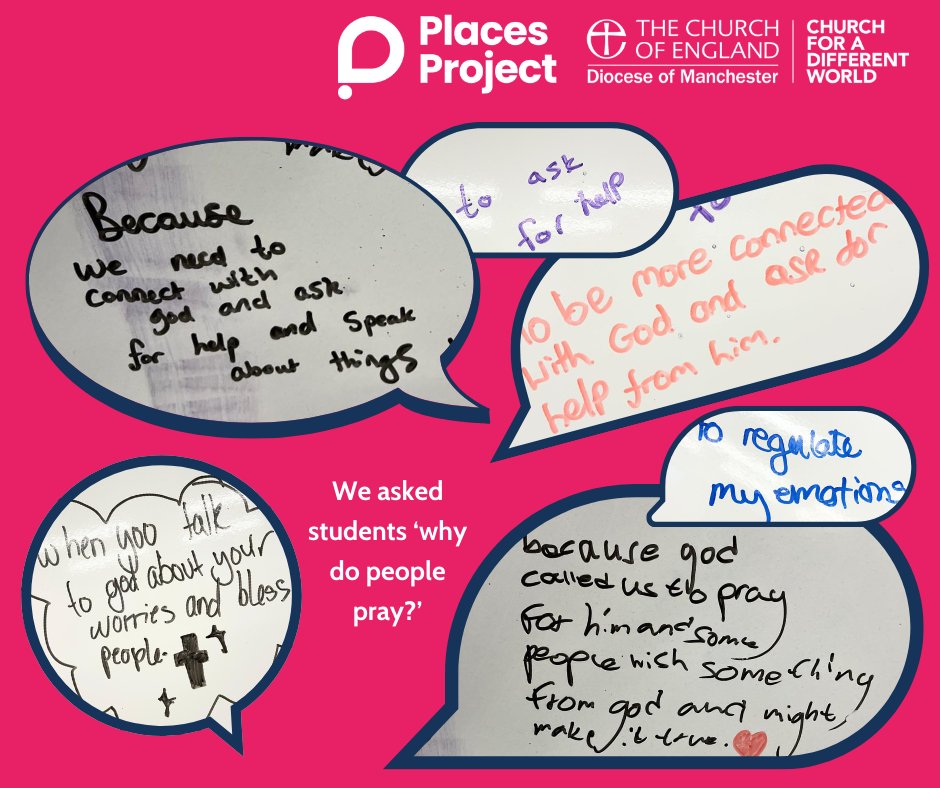 Places
Project
THE CHURCH
OF ENGLAND
Diocese of Manchester
CHURCH
FOR A
DIFFERENT
WORLD
Because
we need to
connect with
god and ask
for help and speak
about things
to ask
for help
to be more connected
with God and ask dor
help from him.
when yoo talk
to god about your
worries and bless
people.
We asked
students ‘why
do people
pray?’
to regulate
my emotions
because god
called us to pray
For him and some
people wish something
from god and might
make it true.